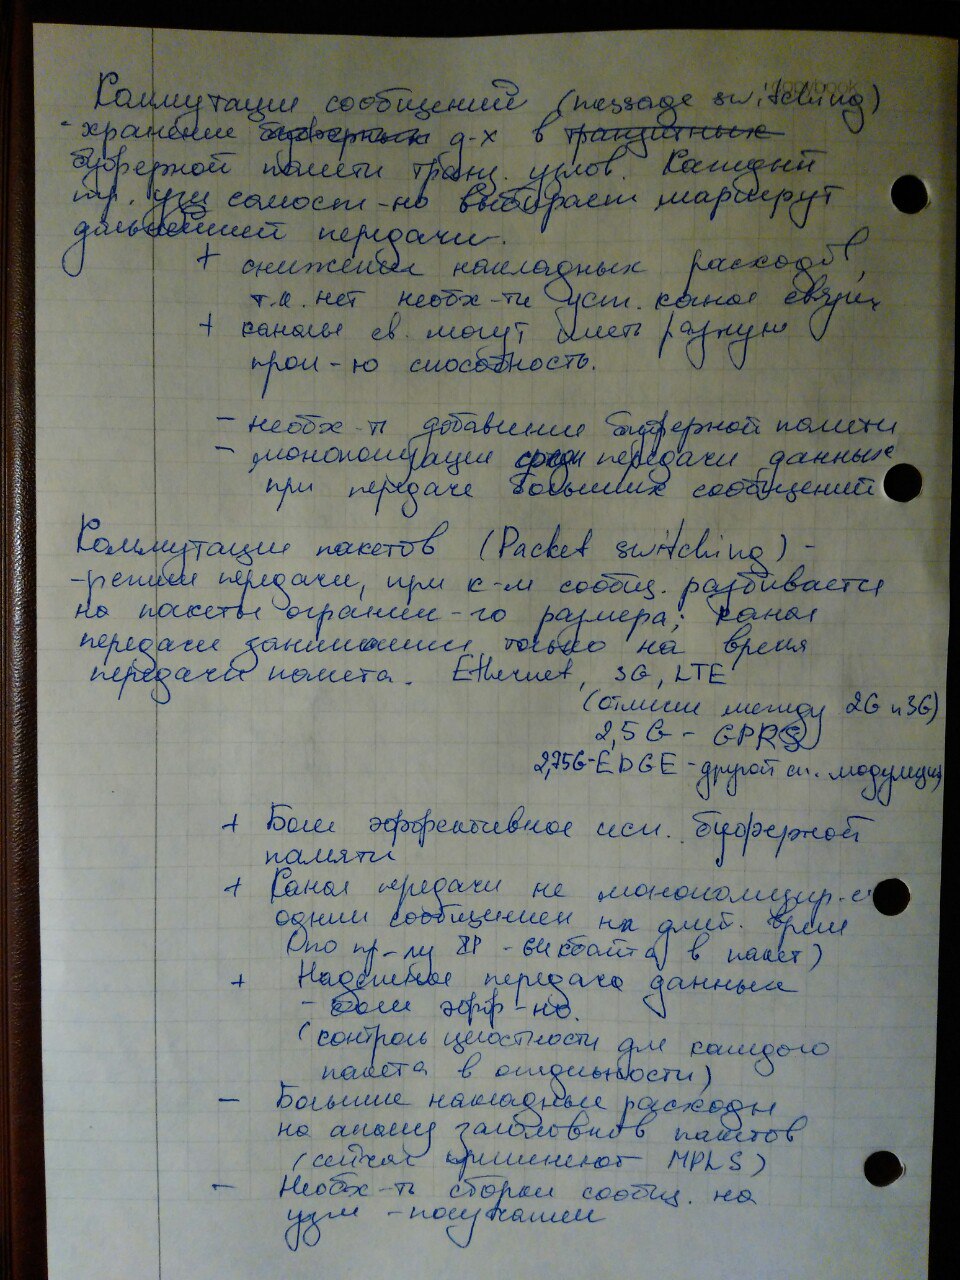 copybook
Коммутация сообщений (message switching)
- хранение буферных д-х в транзитных
буферной памяти транз. узлов. Каждый
тр. узел самост-но выбирает маршрут
дальнейшей передачи.
+ снижение накладных расходов,
т.к. нет необх-ти уст. канал связи
+ каналы св. могут иметь разную
проп-ю способность.
- необх-ть добавления буферной памяти
- монополизация среды передачи данных
при передаче больших сообщений
Коммутация пакетов (Packet switching) -
- режим передачи, при к-м сообщ. разбивается
на пакеты огранич-го размера; канал
передачи занимаем только на время
передачи пакета. Ethernet, 3G, LTE
(отличия между 2G и 3G)
2,5G - GPRS
2,75G - EDGE - другой сп. модуляции
+ Более эффективное исп. буферной
памяти
+ Канал передачи не монополизир-ся
одним сообщением на длит. время
(по пр-лу IP - 64 кбайта в пакет)
+ Надёжная передача данных
- более эфф-но.
(контроль целостности для каждого
пакета в отдельности)
- Большие накладные расходы
на анализ заголовков пакетов
(сейчас применяют MPLS)
- Необх-ть сборки сообщ. на
узле - получателе